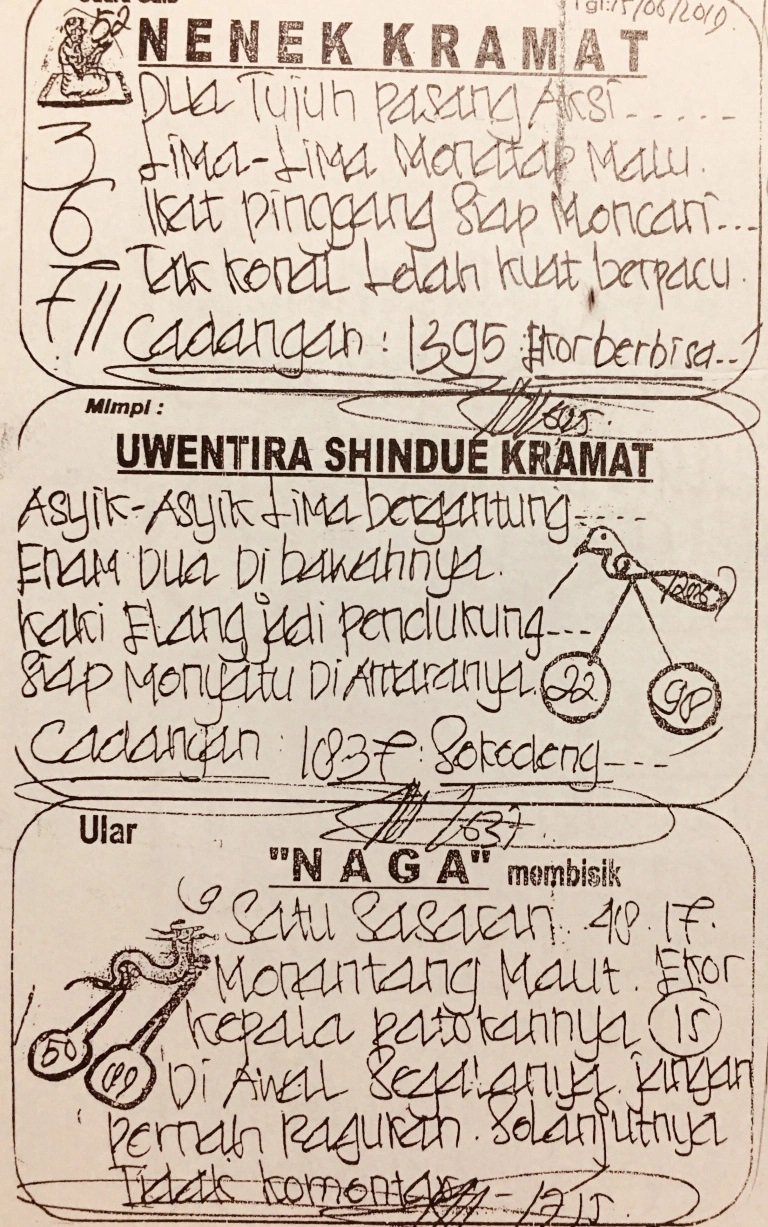 Tgl:15/06/2019
52
NENEK KRAMAT
Dua Tujuh pasang Aksi......
3
Lima-Lima Menatap Malu.
6
Ikat pinggang Siap Mencari...
7//
Tak kenal Lelah kuat berpacu.
Cadangan : 1395 Ekor berbisa...
Mimpi :
625.
UWENTIRA SHINDUE KRAMAT
Asyik-Asyik Lima bergantung-----
Enam Dua Di bawahnya.
kaki Elang jadi pendukung---
Siap Menyatu Di Antaranya.
22
98
Cadangan : 1837 : Sekedeng---
1637.
Ular
"NAGA" membisik
9
Satu Sasaran. 48. 17.
Menantang Maut. Ekor
kepala patokannya 15
50
Di Awal Segalanya. jangan
pernah Ragukan. Selanjutnya
Tidak komentar
1715.